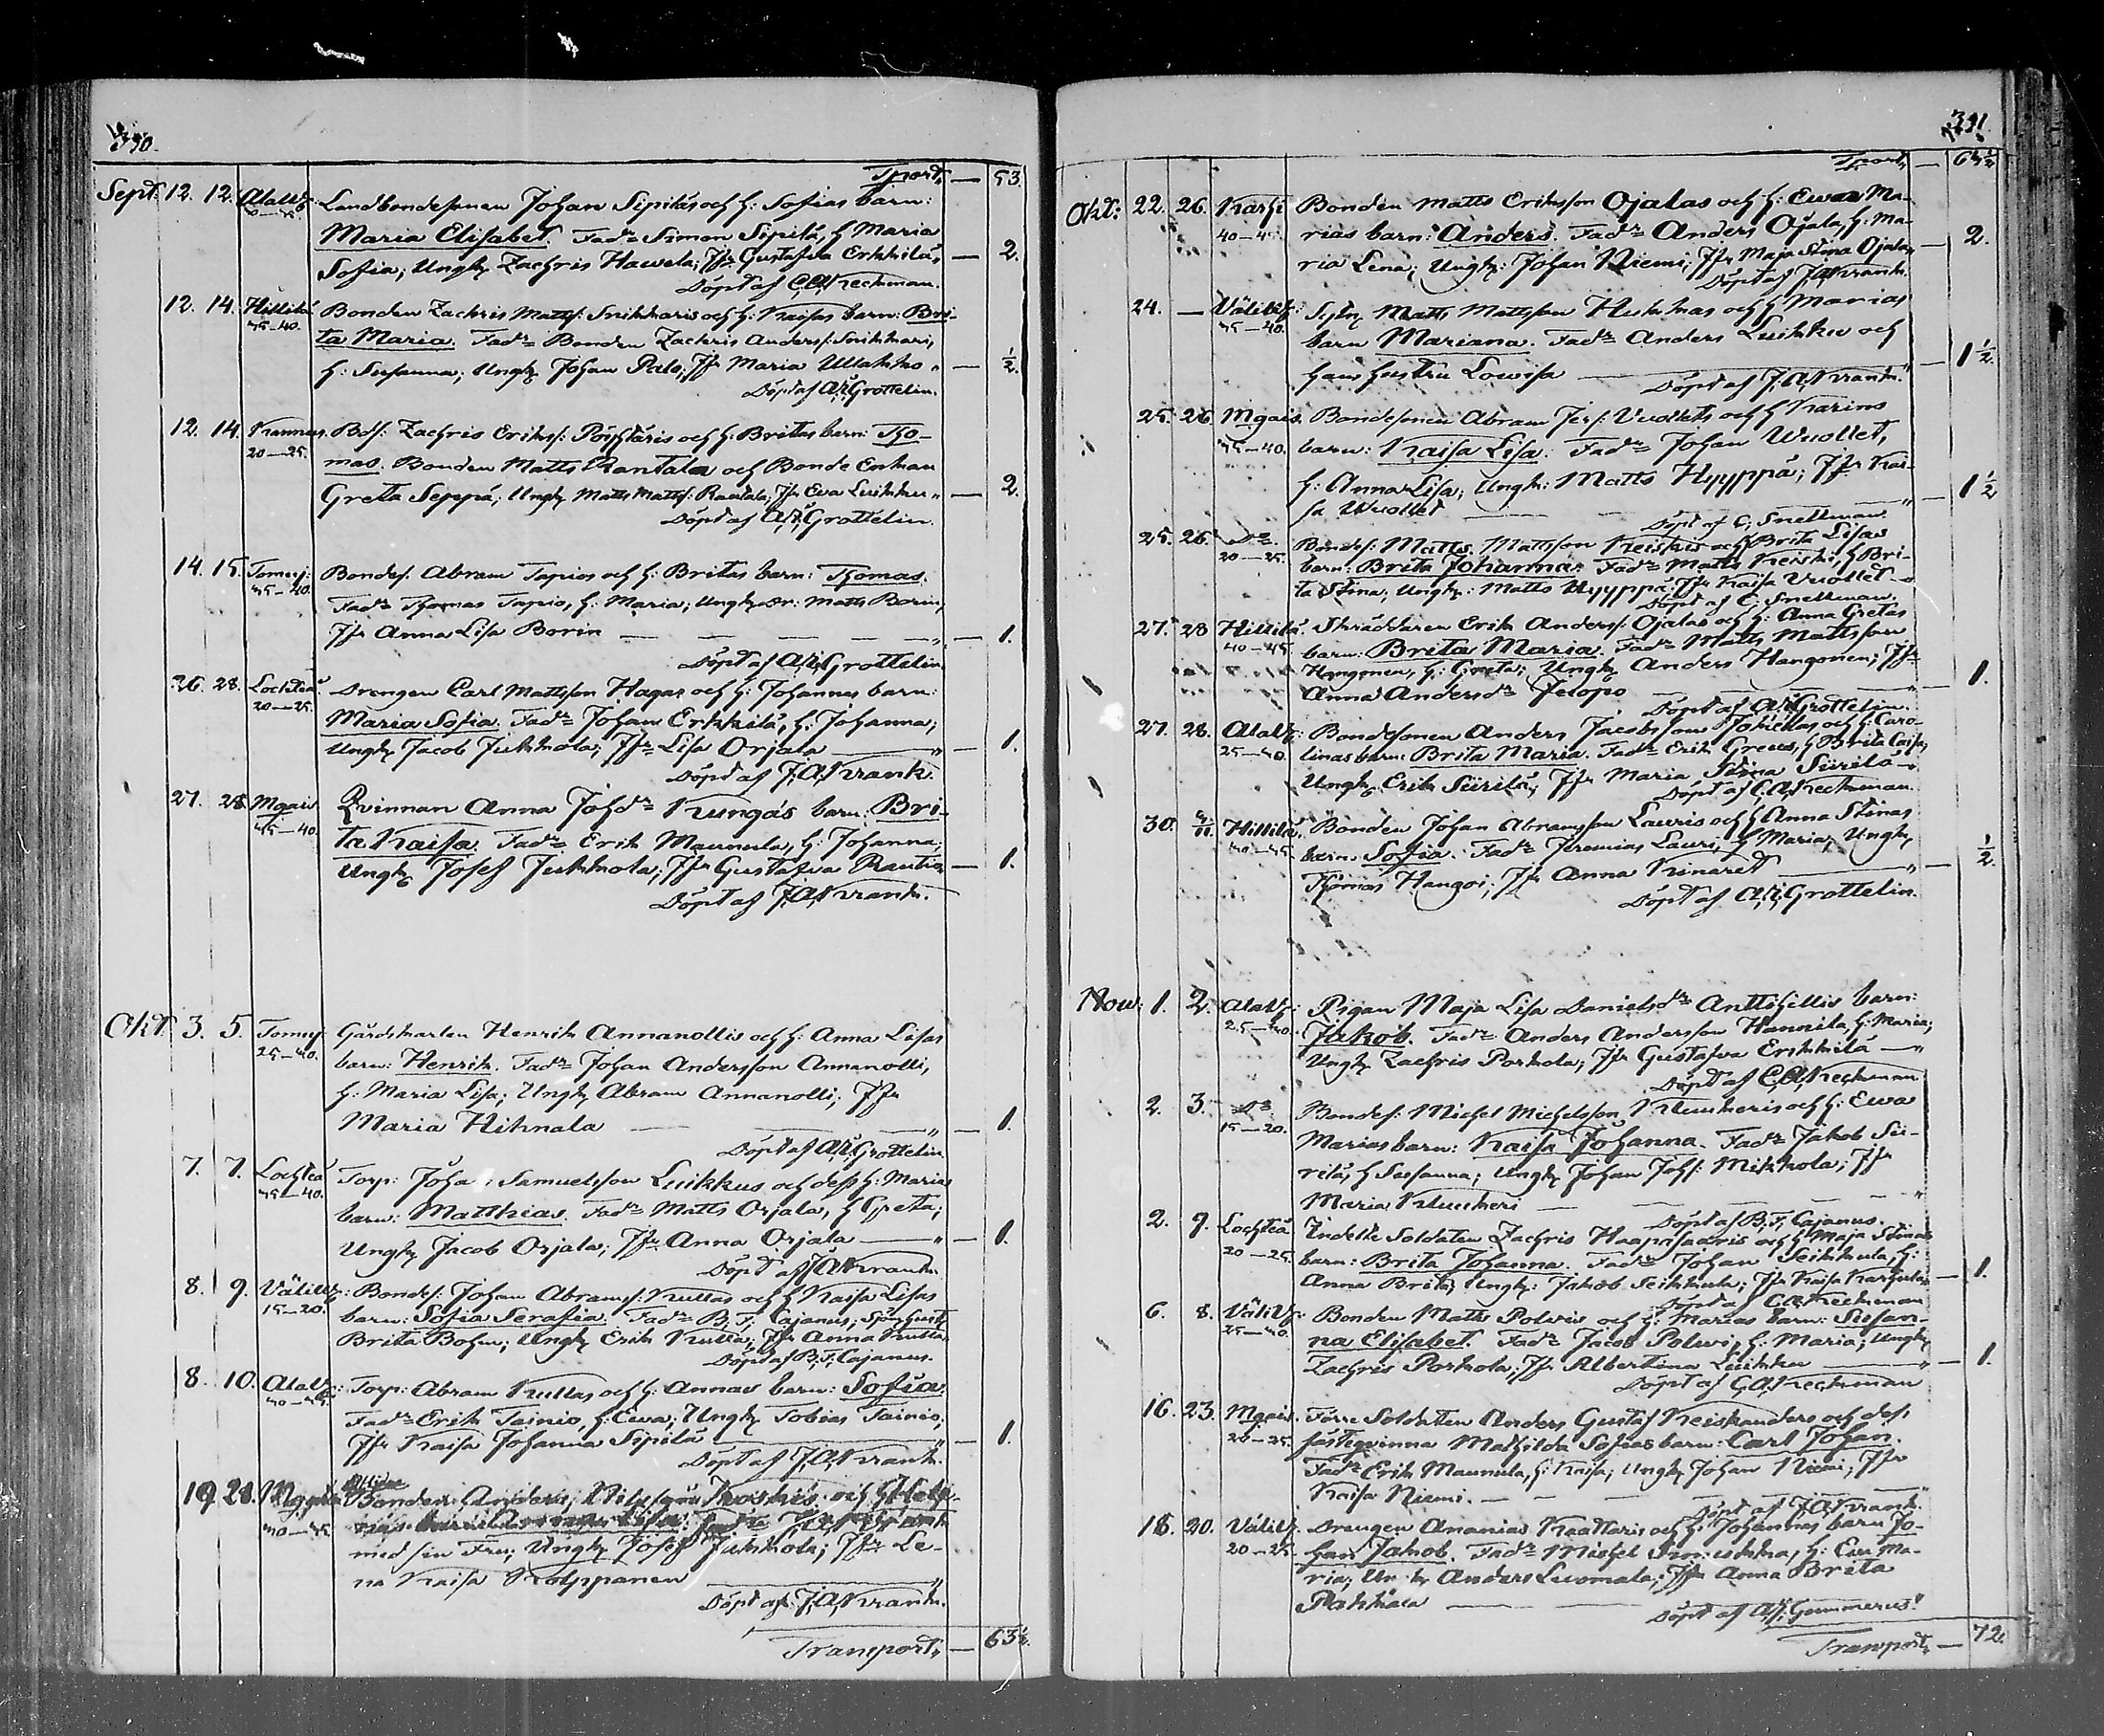 390.
Tport„ — 53.
Sept. 12. 12. Alalf: Landbondesonen Johan Sipiläs och h: Sofias barn:
Maria Elisabet. Fadr Simon Sipilä, h Maria
Sofia; Ungk Zachris Hawela; Jfr Gustafva Erkkilä, — 2.
Döpt af C.A. Keckman.
12. 14. Hillilä Bonden Zachris Mattsf: Snikkaris och h: Kaisas barn: Bri-
35-40. ta Maria. Fadr Bonden Zachris Andersf: Snikkari,
h: Susanna; Ungk Johan Palo; Jfr Maria Ullakko „ — ½.
Döpt af A.R. Grottelin.
12. 14. Kannus. Bdsf: Zachris Eriksf: Pöyhtäris och h: Britas barn: Tho-
20-25. mas. Bonden Matts Rantala och Bonde Enkan
Greta Seppä; Ungk Matts Mattsf: Rantala; Jfr Eva Luikku „ — 2.
Döpt af A.R. Grottelin.
14. 15. Tomuj: Bondes. Abram Tapios och h: Britas barn: Thomas.
35-40. Fadr Thomas Tapio, h: Maria; Ungk Dr: Matts Borin,
Jfr Anna Lisa Borin — — — — — „ — 1.
Döpt af A.R. Grottelin
26. 28. Lochteå Drengen Carl Mattsson Hagas och h: Johannas barn:
20-25. Maria Sofia. Fadr Johan Erkkilä, h: Johanna;
Ungk Jacob Jukkola; Jfr Lisa Orjala — „ — 1.
Döpt af J.A. Krank.
27. 28. Mgais Qvinnan Anna Johdr Kungas barn: Bri-
35-40. ta Kaisa. Fadr Erik Maunula, h: Johanna;
Ungk Josef Jukkola; Jfr Gustafva Rautio — 1.
Döpt af J.A. Krank.
Okt. 3. 5. Tomuj: Gårdskarlen Henrik Annanollis och h: Anna Lisas
25-40. barn: Henrik. Fadr Johan Andersson Annanolli,
h: Maria Lisa; Ungk Abram Annanolli; Jfr
Maria Hihnala — — — „ — 1.
Döpt af A.R. Grottelin
7. 7. Lochteå Torp: Johan Samuelsson Luikkus och dess h: Marias
35-40. barn: Matthias. Fadr Matts Orjala, h Greta;
Ungk Jacob Orjala; Jfr Anna Orjala — „ — 1.
Döpt af J.A. Krank.
8. 9. Välilf: Bondes: Johan Abramsf: Kullas och h Kaisa Lisas
15-20. barn: Sofia Serafia. Fadr B. F. Cajanus,
Brita Bohm; Ungk Erik Kulla; Jfr Anna Kulla.
Döpt af B. F. Cajanus.
8. 10. Alalf: Torp: Abram Kullas och h: Annas barn: Sofia.
Fadr Erik Tainio, h: Ewa; Ungk Tobias Tainio;
Jfr Kaisa Johanna Sipilä — „ — 1.
Döpt af J.A. Krank.
19. 21. Mgais Bonden Anders
40-45. barn
med sin Fru; Ungk Josef Jukkola; Jfr Le-
na Kaisa Kolppanen — „
Döpt af J.A. Krank.
Transport„ — 63½.
391.
Tport„ —
Okt: 22. 26. Karhi Bonden Matts Eriksson Ojalas och h: Ewa Ma-
40-45. rias barn: Anders. Fadr Anders Ojala, h: Ma-
ria Lena; Ungk: Johan Niemi; Jfr Maja Stina Ojala, — 2.
Döpt af J.A. Krank.
24. — Välilf: Matts Mattsson Huknas och h Marias
35-40. barn Mariana. Fadr Anders Luikku och
hans hustru Lowisa — „ — 1½.
Döpt af J.A. Krank.
25. 26. Mgais. Bondesonen Abram Jersf: Vuollets och h Karins
35-40. barn: Kaisa Lisa. Fadr Johan Wuollet,
h: Anna Lisa; Ungk: Matts Hyyppä; Jfr Kai-
sa Wuollet — — „ — 1½
Döpt af C. Snellman.
25. 26. Do Bondes: Matts Mattsson Keiskis och h Brita Lisas
20-25. barn: Brita Johanna. Fadr Matts Keiski, h Bri-
ta Stina; Ungk: Matts Hyyppä; Jfr Kaisa Vuollet
Döpt af C. Snellman.
27. 28 Hillilä. Skräddaren Erik Andersf: Ojalas och h: Anna Gretas
40-45. barn: Brita Maria. Fadr Matts Mattsson
Hangonen, h: Greta; Ungk Anders Hangonen; Jfr
Anna Andersdr Jelopo — „ — 1.
Döpt af A.R. Grottelin.
27. 28. Alalf: Bondesonen Anders Jacobsson Jokelas och h: Caro-
linas barn: Brita Maria. Fadr Erik Greus, h Brita Caisa;
Ungk Erik Siirilä; Jfr Maria Stina Siirilä
Döpt af C.A. Keckman.
30. Hillilä. Bonden Johan Abramsson Lauris och h Anna Stinas
40-45. barn: Sofia. Fadr Jeremias Lauri, h Maria; Ungk,
Thomas Hangoi; Jfr Anna Kinaret — „ — ½.
Döpt af A.R. Grottelin.
Now. 1. 2. Alalf: Pigan Maja Lisa Danielsdr Anttihillis barn:
25-40. Jakob. Fadr Anders Andersson Hannila, h: Maria;
Ungk Zachris Porkola; Jfr Gustafva Erkkilä — „
Döpt af C.A. Keckman
2. 3. Do Bondes: Michel Michelsson Klemeris och h: Ewa
15-20. Marias barn: Kaisa Johanna. Fadr Jakob Sii-
rilä, h Susanna; Ungk Johan Johsf: Mikkola; Jfr
Maria — — — — „
Döpt af B. F. Cajanus.
2. 9. Lochteå Indelte Soldaten Zachris Haapasaaris och h Maja Stinas
20-25. barn: Brita Johanna. Fadr Johan Seikkula, h:
Anna Brita; Ungk: Jakob Seikkula; Jfr Kaisa Karhula — 1.
Döpt af C.A. Keckman
6. 8. Välilf: Bonden Matts Polvis och h: Marias barn: Susan-
25-40. na Elisabet. Fadr Jacob Polvi, h: Maria; Ungk
Zachris Porkola; Jfr Albertina Luikku — „ — 1.
Döpt af C.A. Keckman
16. 23. Mgais. Förre Soldaten Anders Gustaf Keiskanders och dess
20-25. fästeqvinna Mathilda Sofias barn: Carl Johan.
Fadr Erik Maunula, h: Kaisa; Ungk Johan Niemi; Jfr
Kaisa Niemi. — — — „
Döpt af J.A. Krank.
18. 20. Välilf. Drengen Ananias Kaattaris och h: Johannas barn Jo-
20-25. han Jakob. Fadr Michel h: Ewa Ma-
ria; Ungk Anders Luomala; Jfr Anna Brita
Pahkala — — — „
Döpt af A.J. Gummerus.
Transport„ — 72.